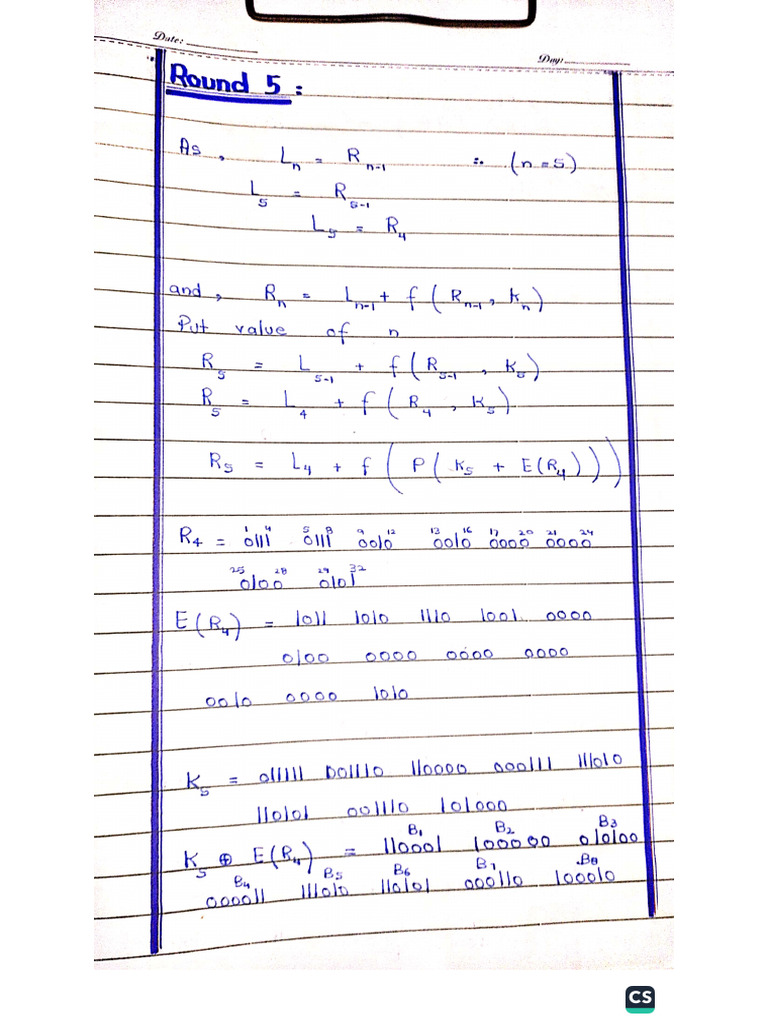 Date:
Day:
Round 5 :
As , Lₙ = Rₙ₋₁ ∵ (n = 5)
L₅ = R₅₋₁
L₅ = R₄
and , Rₙ = Lₙ₋₁ + f ( Rₙ₋₁ , Kₙ )
Put value of n
R₅ = L₅₋₁ + f ( R₅₋₁ , K₅ )
R₅ = L₄ + f ( R₄ , K₅ ).
R₅ = L₄ + f ( P ( K₅ + E ( R₄ ) ) )
1 4 5 8 9 12 13 16 17 20 21 24
R₄ = 0111 0111 0010 0010 0000 0000
25 28 29 32
0100 0101
E ( R₄ ) = 1011 1010 1110 1001 0000
0100 0000 0000 0000
0010 0000 1010
K₅ = 011111 001110 110000 000111 111010
110101 001110 101000
B₁ B₂ B₃
K₅ ⊕ E ( R₄ ) = 110001 100000 010100
B₄ B₅ B₆ B₇ B₈
000011 111010 110101 000110 100010
CS